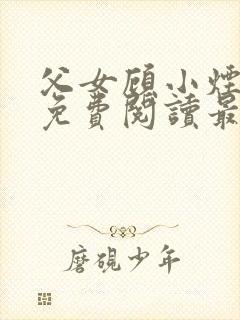 父女顾小煙
免費閱讀最
磨硯少年